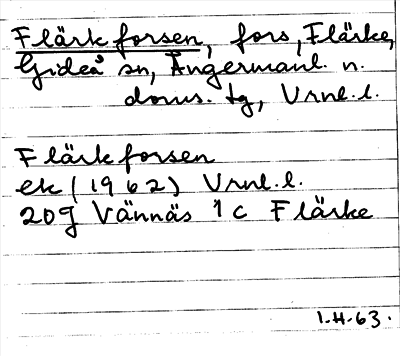 Flärkforsen, fors, Flärke,
Gideå sn, Ångermanl. n.
doms. tg, Vrnl. l.
Flärkforsen
ek (1962) Vrnl. l.
20g Vännäs 1 c Flärke
I.H.63.